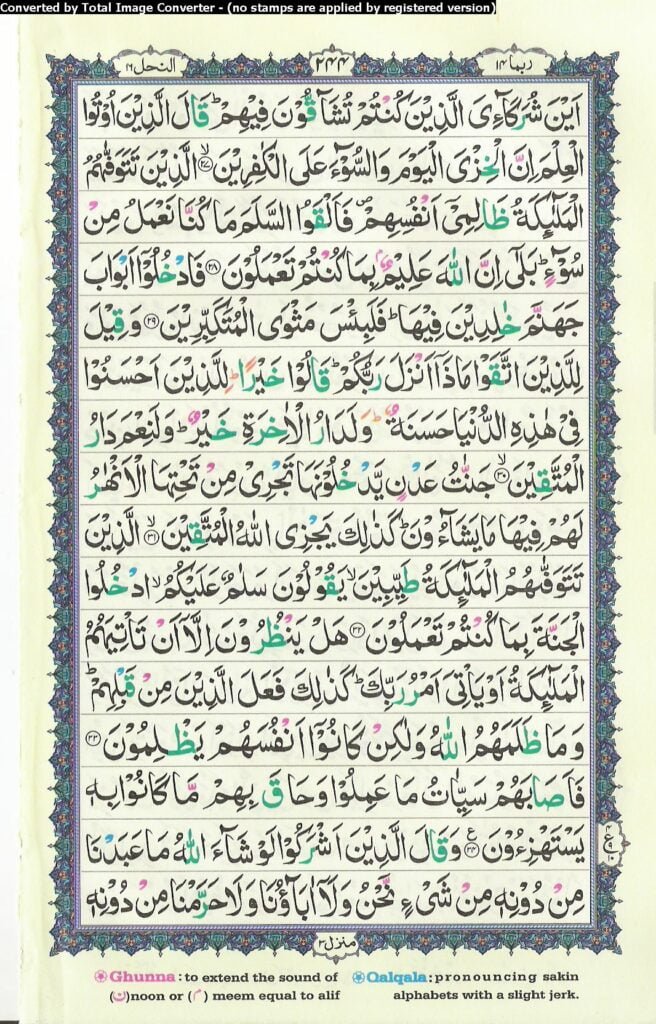 Converted by Total Image Converter - (no stamps are applied by registered version)
ربما ۱۴
۲۴۴
النحل ۱۶
اَيْنَ شُرَكَآءِىَ الَّذِيْنَ كُنْتُمْ تُشَآقُّوْنَ فِيْهِمْ ؕ قَالَ الَّذِيْنَ اُوْتُوا
الْعِلْمَ اِنَّ الْخِزْىَ الْيَوْمَ وَالسُّوْٓءَ عَلَى الْكٰفِرِيْنَ ۙ‏﴿۲۷﴾ الَّذِيْنَ تَتَوَفّٰٮهُمُ
الْمَلٰٓٮِٕكَةُ ظَالِمِىْۤ اَنْفُسِهِمْ ۖ فَاَلْقَوُا السَّلَمَ مَا كُنَّا نَعْمَلُ مِنْ
سُوْٓءٍ ؕ بَلٰٓى اِنَّ اللّٰهَ عَلِيْمٌۢ بِمَا كُنْتُمْ تَعْمَلُوْنَ ﴿۲۸﴾ فَادْخُلُوْۤا اَبْوَابَ
جَهَنَّمَ خٰلِدِيْنَ فِيْهَا ؕ فَلَبِئْسَ مَثْوَى الْمُتَكَبِّرِيْنَ ﴿۲۹﴾ وَقِيْلَ
لِلَّذِيْنَ اتَّقَوْا مَاذَاۤ اَنْزَلَ رَبُّكُمْ ؕ قَالُوْا خَيْرًا ؕ لِلَّذِيْنَ اَحْسَنُوْا
فِىْ هٰذِهِ الدُّنْيَا حَسَنَةٌ ؕ وَلَدَارُ الْاٰخِرَةِ خَيْرٌ ؕ وَلَنِعْمَ دَارُ
الْمُتَّقِيْنَ ۙ﴿۳۰﴾ جَنّٰتُ عَدْنٍ يَّدْخُلُوْنَهَا تَجْرِىْ مِنْ تَحْتِهَا الْاَنْهٰرُ
لَهُمْ فِيْهَا مَا يَشَآءُوْنَ ؕ كَذٰلِكَ يَجْزِى اللّٰهُ الْمُتَّقِيْنَ ۙ﴿۳۱﴾ الَّذِيْنَ
تَتَوَفّٰٮهُمُ الْمَلٰٓٮِٕكَةُ طَيِّبِيْنَ ۙ يَقُوْلُوْنَ سَلٰمٌ عَلَيْكُمُ ۙ ادْخُلُوا
الْجَنَّةَ بِمَا كُنْتُمْ تَعْمَلُوْنَ ﴿۳۲﴾ هَلْ يَنْظُرُوْنَ اِلَّاۤ اَنْ تَاْتِيَهُمُ
الْمَلٰٓٮِٕكَةُ اَوْ يَاْتِىَ اَمْرُ رَبِّكَ ؕ كَذٰلِكَ فَعَلَ الَّذِيْنَ مِنْ قَبْلِهِمْ ؕ
وَمَا ظَلَمَهُمُ اللّٰهُ وَلٰكِنْ كَانُوْۤا اَنْفُسَهُمْ يَظْلِمُوْنَ ﴿۳۳﴾
فَاَصَابَهُمْ سَيِّاٰتُ مَا عَمِلُوْا وَحَاقَ بِهِمْ مَّا كَانُوْا بِهٖ
يَسْتَهْزِءُوْنَ ﴿۳۴﴾ ع وَقَالَ الَّذِيْنَ اَشْرَكُوْا لَوْ شَآءَ اللّٰهُ مَا عَبَدْنَا
مِنْ دُوْنِهٖ مِنْ شَىْءٍ نَّحْنُ وَلَاۤ اٰبَآؤُنَا وَلَا حَرَّمْنَا مِنْ دُوْنِهٖ
منزل ۳
Ghunna : to extend the sound of (ن) noon or (م) meem equal to alif
Qalqala : pronouncing sakin alphabets with a slight jerk.